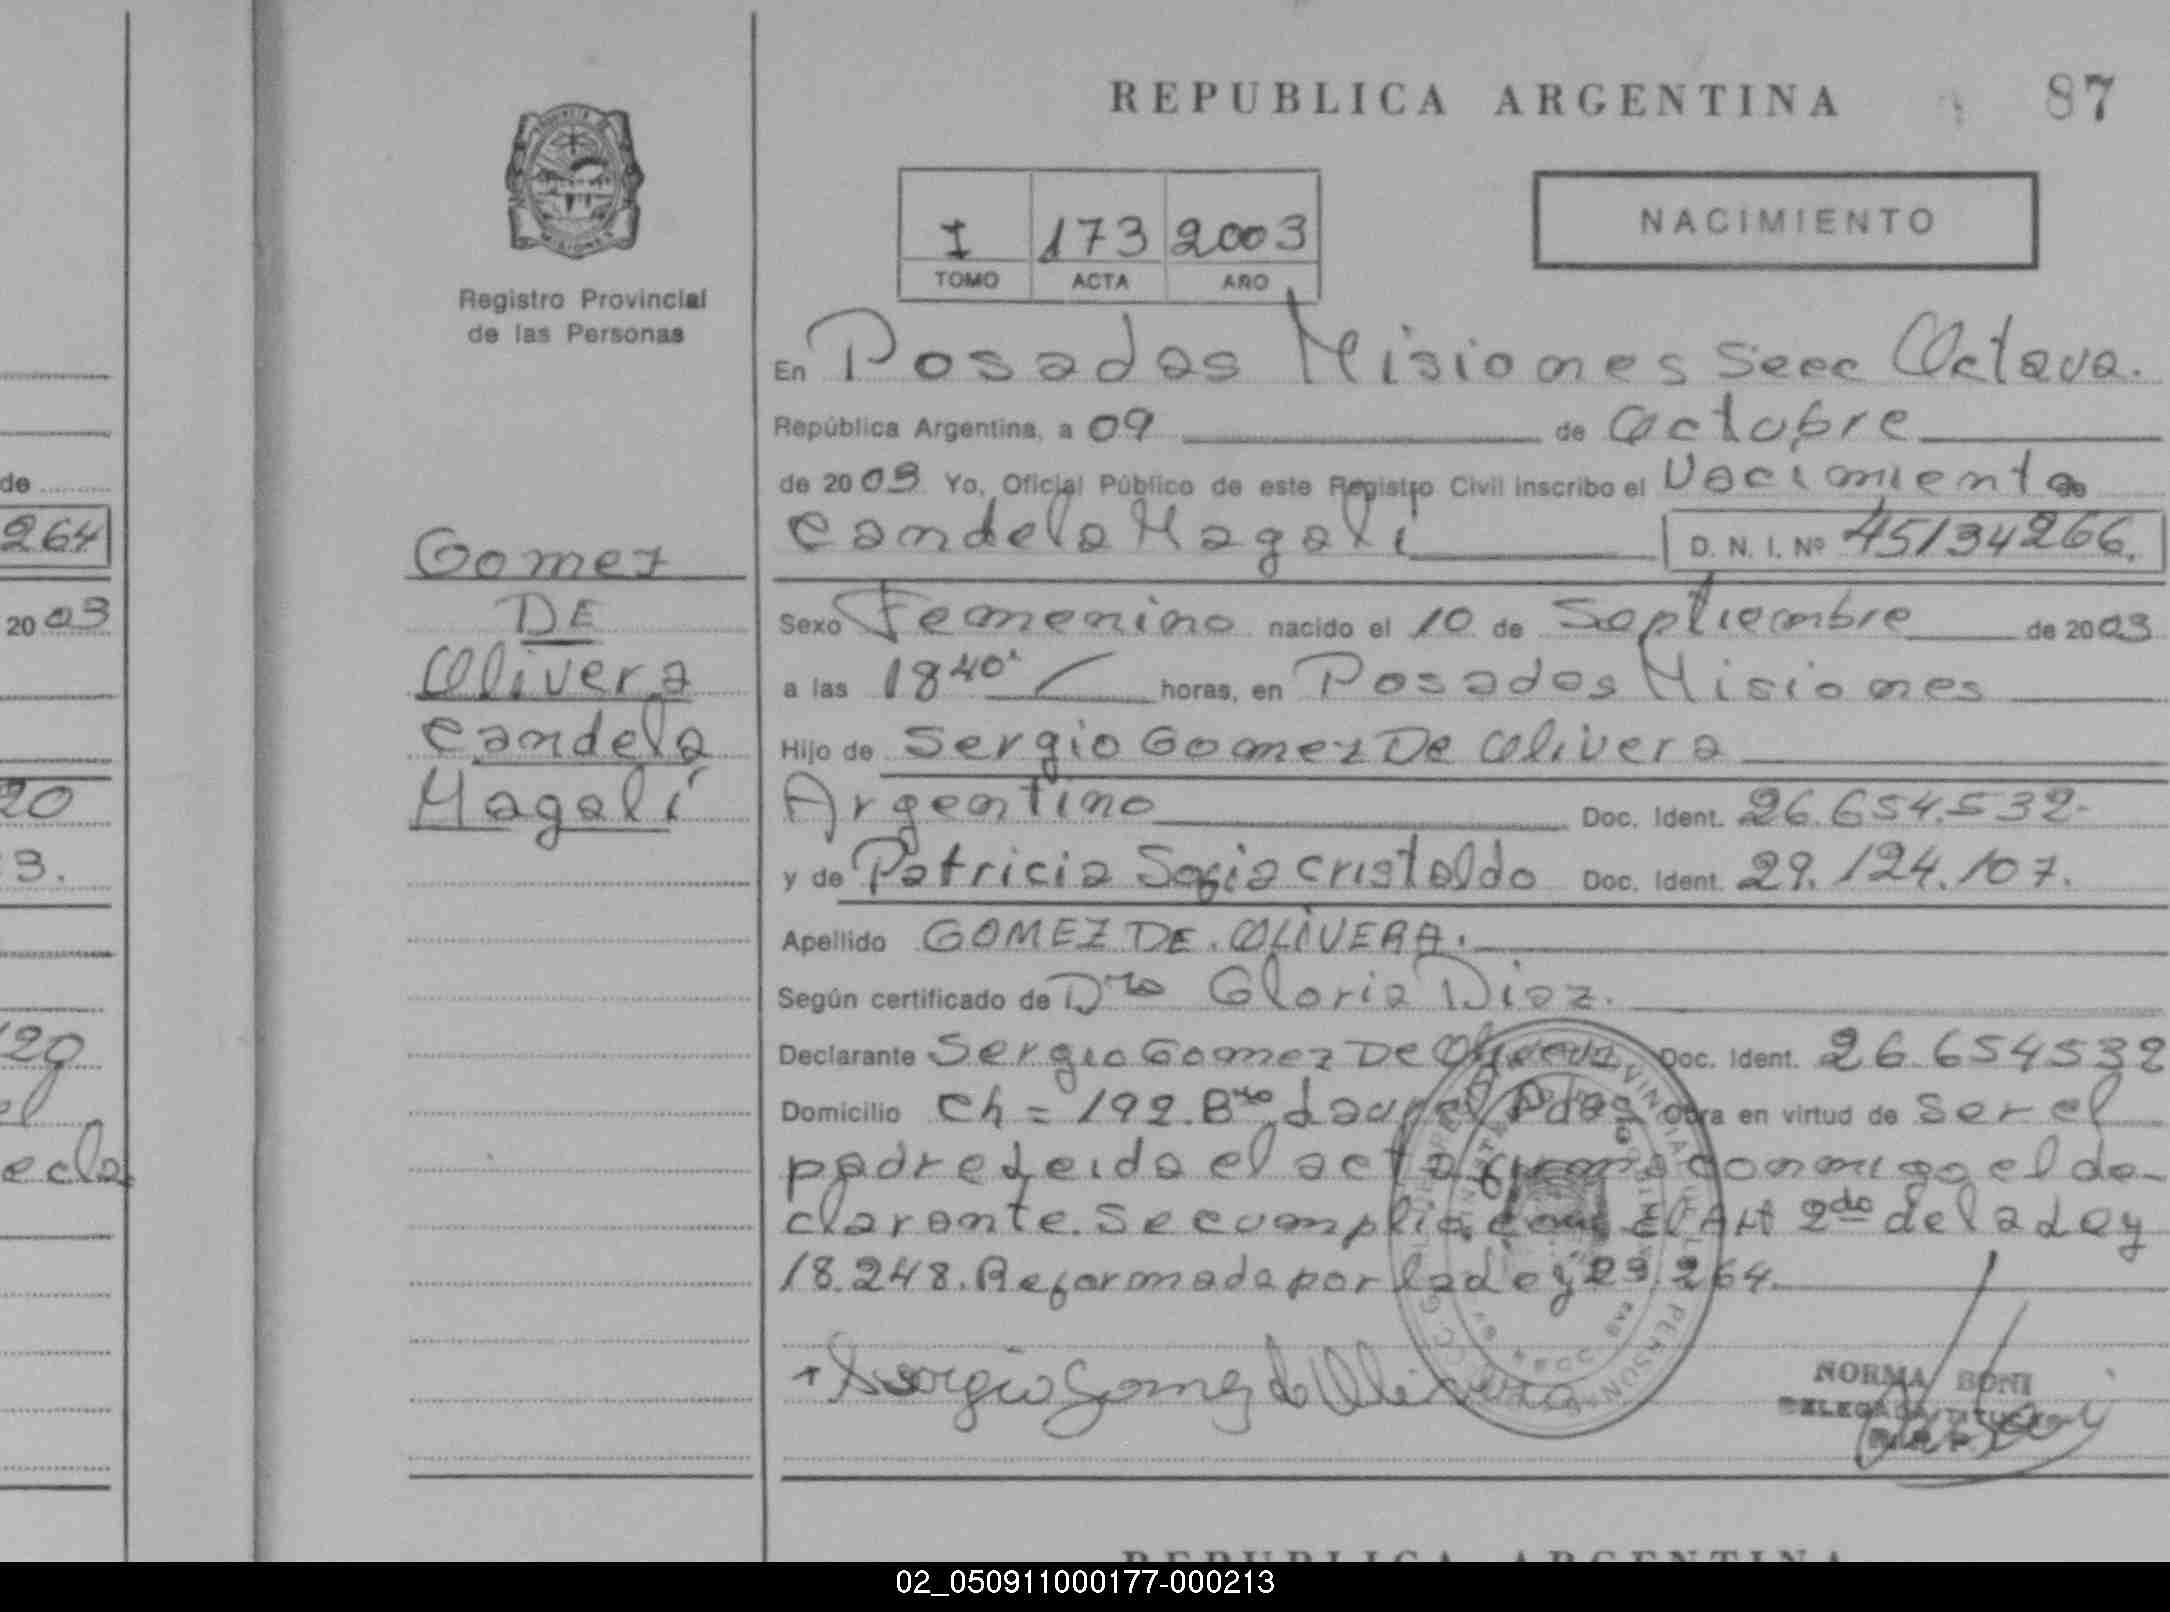 REPUBLICA ARGENTINA
87
PROVINCIA DE
MISIONES
Registro Provincial
de las Personas
I 173 2003
TOMO ACTA AÑO
NACIMIENTO
En Posadas Misiones Secc Octava.
República Argentina, a 09 de Octubre
de 2003 Yo, Oficial Público de este Registro Civil inscribo el Nacimiento
Candela Magalí D. N. I. Nº 45134266.
Sexo Femenino nacido el 10 de Septiembre de 2003
a las 18 40' horas, en Posadas Misiones
Hijo de Sergio Gomez De Olivera
Argentino Doc. Ident. 26.654.532-
y de Patricia Sofia Cristaldo Doc. Ident. 29.124.107.
Apellido GOMEZ DE OLIVERA.
Según certificado de Dra Gloria Diaz.
Declarante Sergio Gomez De Olivera Doc. Ident. 26.654532
Domicilio Ch = 192. Bro. Laurel Pdas Obra en virtud de Ser el
padre Leida el acta firma conmigo el de-
clarante. Se cumplio con el Art 2do de la Ley
18.248. Reformada por la Ley 23.264.
Gomez
DE
Olivera
Candela
Magalí
+ Sergio Gomez de Olivera
NORMA BONI
DELEGADA TITULAR
de
264
2003
20
3.
120
el
ecla
REPUBLICA ARGENTINA
02_050911000177-000213